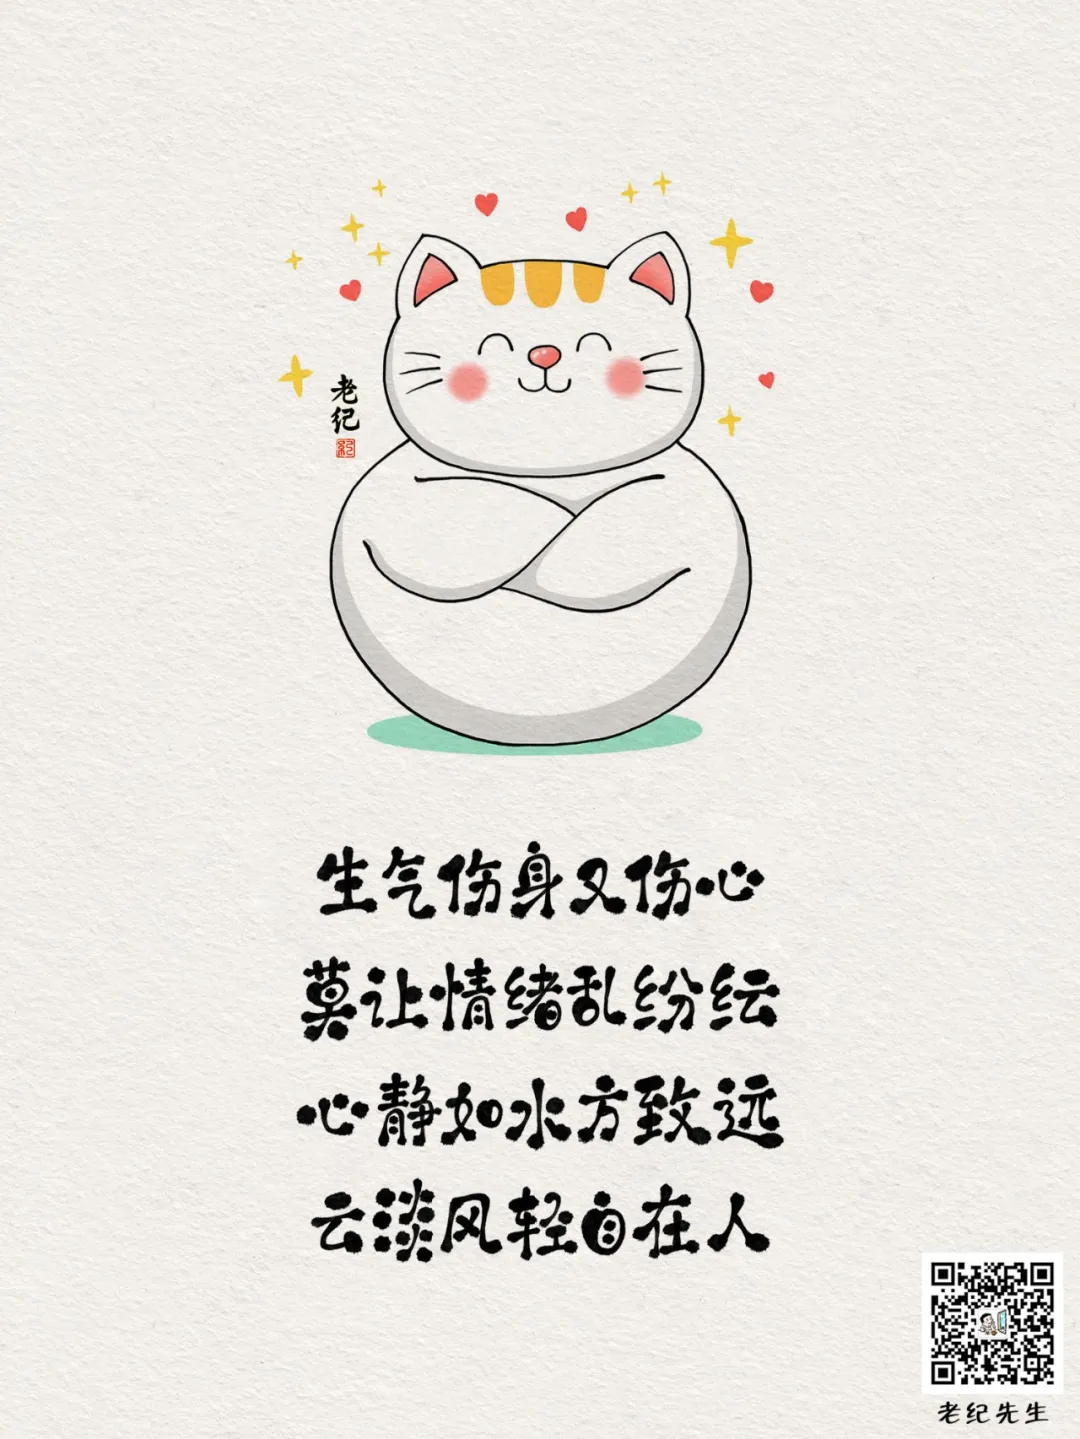 老纪
生气伤身又伤心
莫让情绪乱纷纭
心静如水方致远
云淡风轻自在人
老纪先生